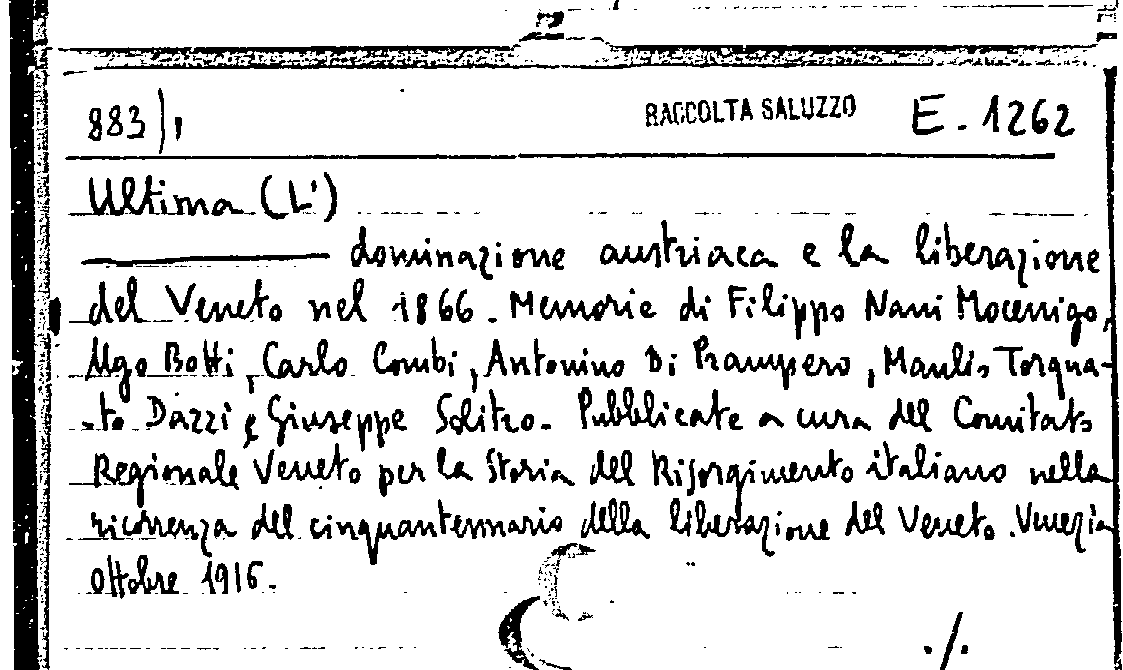 883), RACCOLTA SALUZZO E. 1262
Ultima (L')
dominazione austriaca e la liberazione
del Veneto nel 1866. Memorie di Filippo Nani Mocenigo,
Ugo Botti, Carlo Combi, Antonino Di Prampero, Manlio Torqua-
to Dazzi e Giuseppe Solitro. Pubblicate a cura del Comitato
Regionale Veneto per la Storia del Risorgimento italiano nella
ricorrenza del cinquantennario della liberazione del Veneto. Venezia
Ottobre 1916.
./.